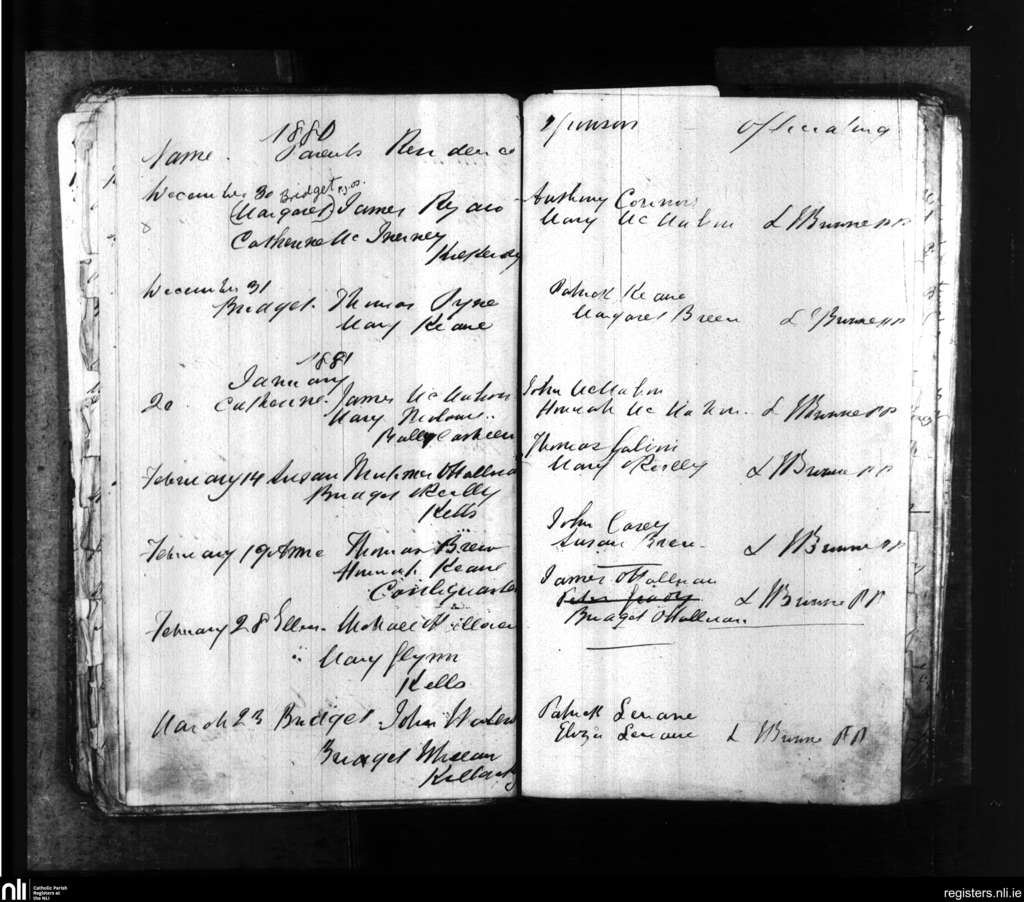 1880
Name. Parents Residence
December 30 Bridget
(Margaret) James Ryan
Catherine Mc Inerney
December 31
Bridget. Thomas Pyne
Mary Keane
1881
January
20 Catherine. James McMahon
Mary
February 14 Susan O'Halloran
Bridget O'Reilly
Kells
February 19 Anne Thomas Breen
Hannah Keane
February 28 Ellen. Michael
Mary Glynn
Kells
March 23 Bridget John
Bridget Whelan
Sponsors Officiating
Anthony Connors
Mary McMahon L Browne PP
Patrick Keane
Margaret Breen L Browne PP
John McMahon
Hannah McMahon. L Browne PP
Thomas Galvin
Mary O'Reilly L Browne PP
John Casey
Susan Breen. L Browne PP
James O'Halloran
L Browne PP
Bridget O'Halloran
Patrick Lenane
Eliza Lenane L Browne PP
nli
Catholic Parish
Registers at
the NLI
registers.nli.ie